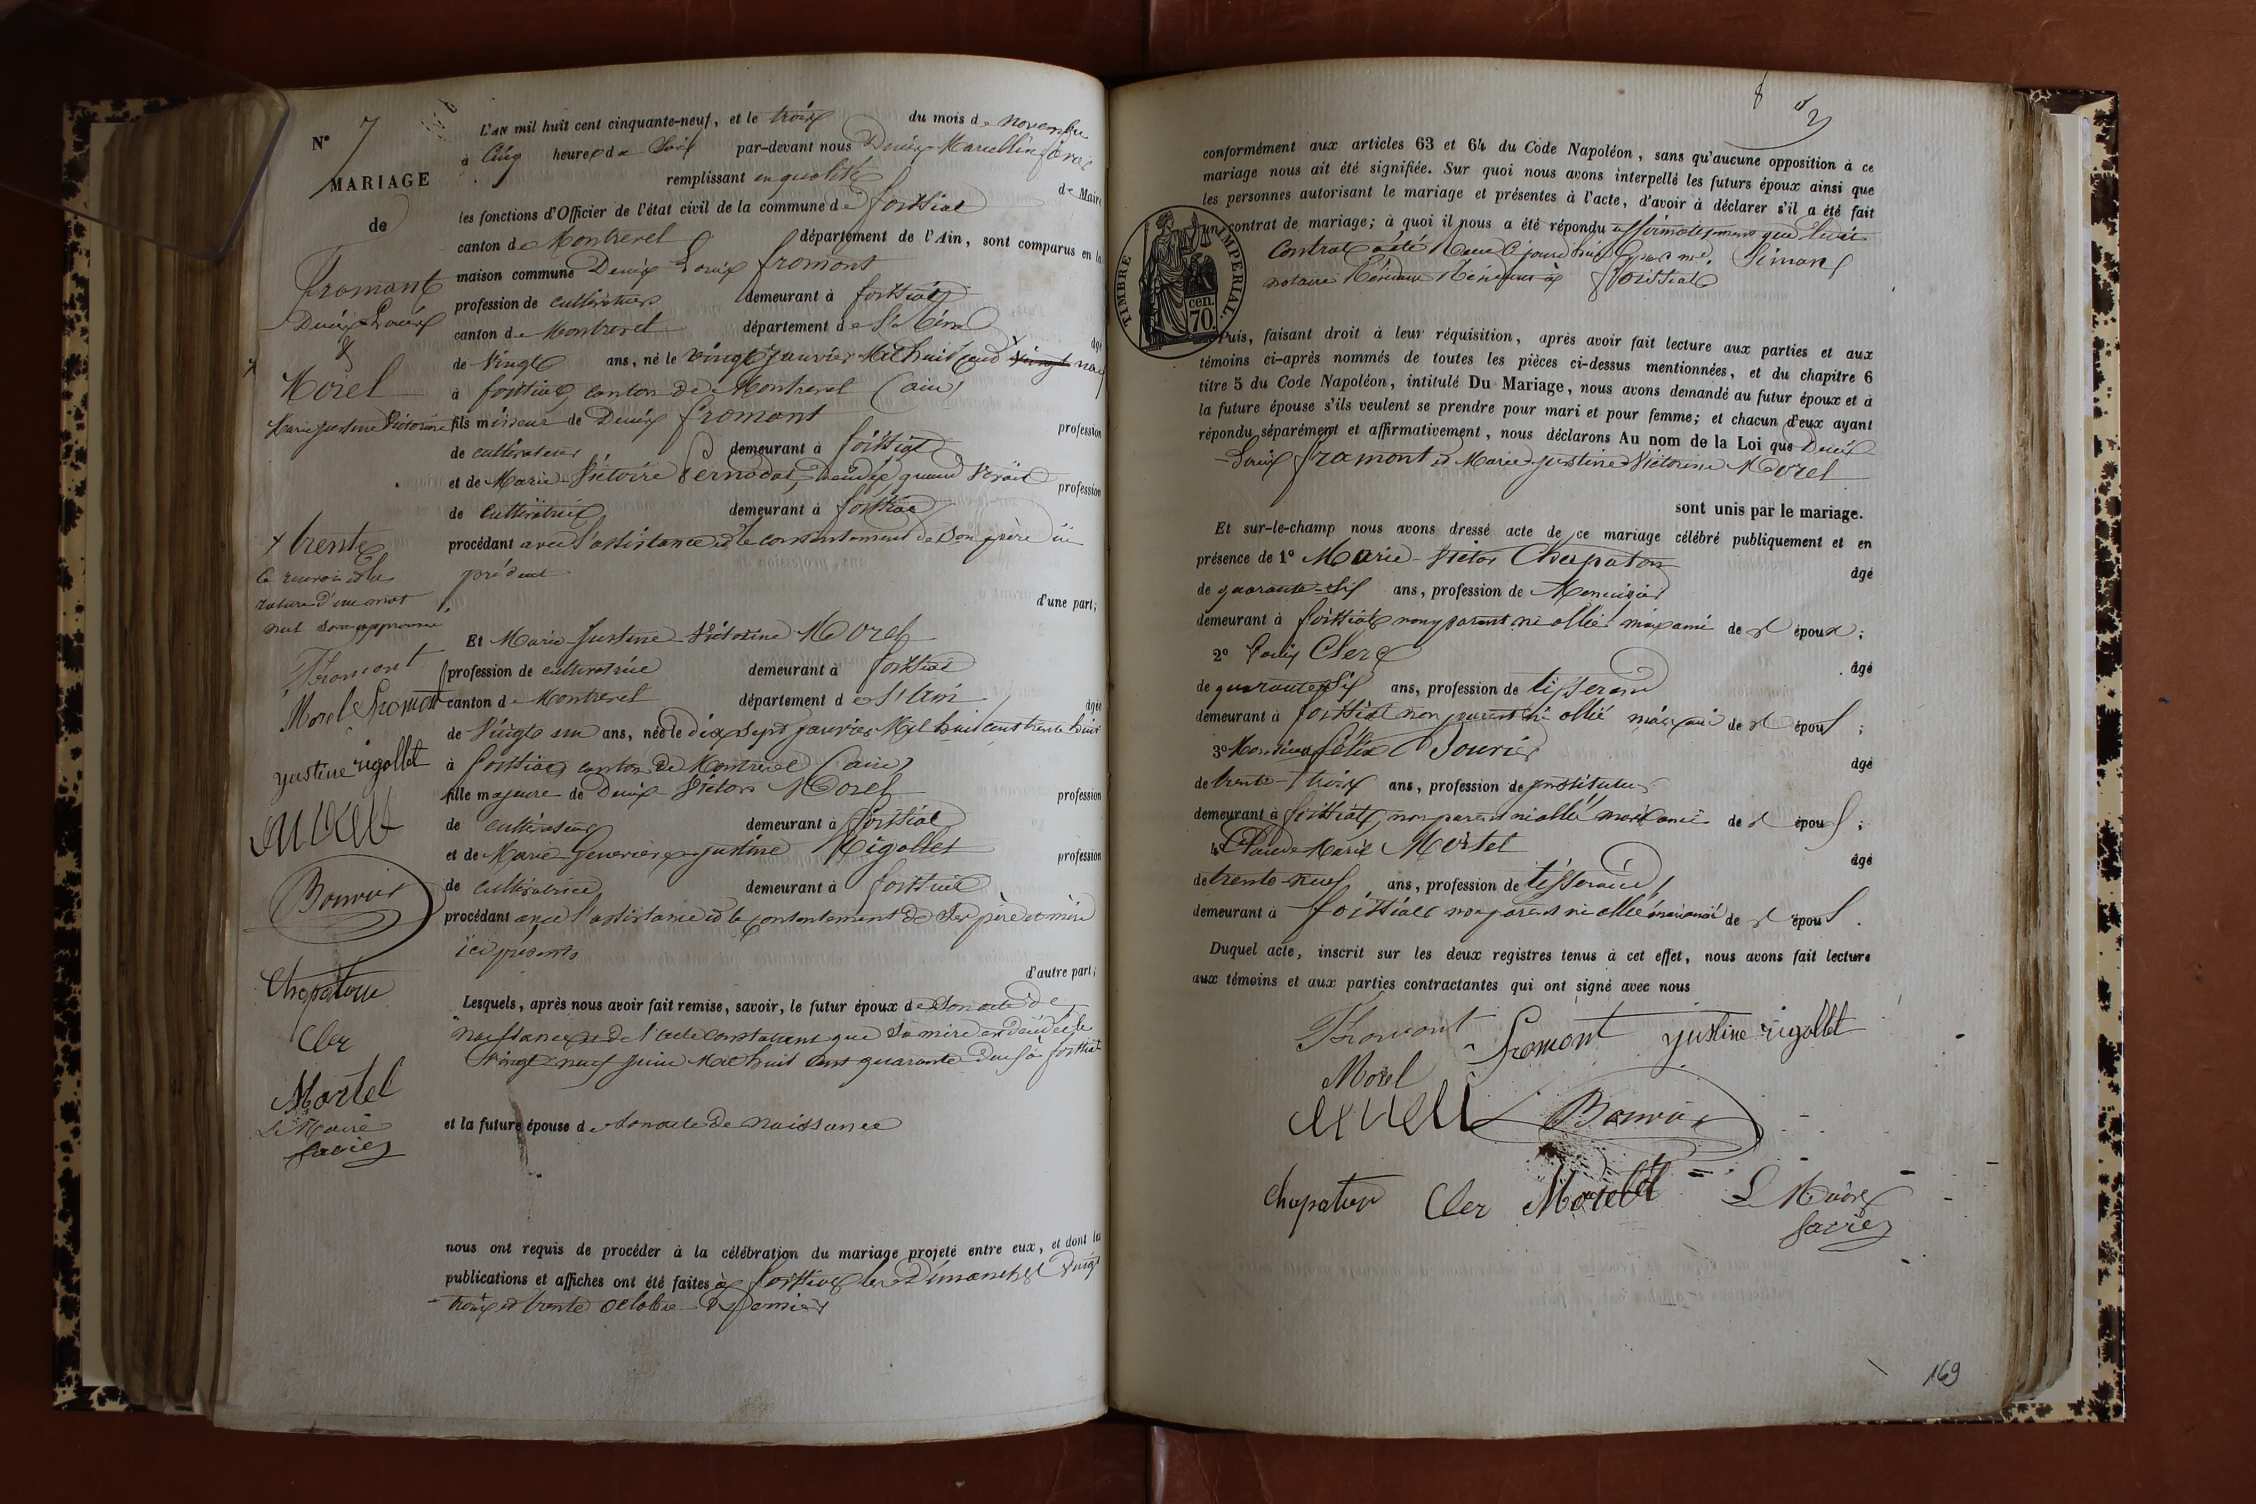 N° 7
MARIAGE
de
Fromont
Denis Louis
&
Morel
Marie Justine Victorine
+ trente
le renvoi et la
rature d'un mot
nul sont approuvé
Fromont
Morel Fromont
justine rigollet
Bouvier
Chapaton
Cler
Martel
Le Maire
favier
L'AN mil huit cent cinquante-neuf, et le trois du mois de novembre
à Cinq heures du Soir par-devant nous Denis Marcellin favier
remplissant en qualité de Maire
les fonctions d'Officier de l'état civil de la commune de foissiat
canton de Montrevel département de l'Ain, sont comparus en la
maison commune Denis Louis fromont
profession de cultivateur demeurant à foissiat
canton de Montrevel département de l'Ain âgé
de vingt ans, né le vingt janvier Mil huit cent vingt neuf
à foissiat canton de Montrevel (ain)
fils mineur de Denis fromont profession
de cultivateur demeurant à foissiat
et de Marie Victoire Pernodat, décédée quand vivait profession
de cultivatrice demeurant à foissiat
procédant avec l'assistance et le consentement de Son père ici
présent
d'une part;
Et Marie Justine Victorine Morel
profession de cultivatrice demeurant à foissiat
canton de Montrevel département de l'Ain âgée
de Vingt un ans, née le dix sept janvier Mil huit cent trente huit
à foissiat canton de Montrevel (ain)
fille majeure de Denis Victor Morel profession
de cultivateur demeurant à foissiat
et de Marie Genevieve justine Rigollet profession
de cultivatrice demeurant à foissiat
procédant avec l'assistance et le consentement de Ses père et mère
ici présents
d'autre part;
Lesquels, après nous avoir fait remise, savoir, le futur époux de Son acte de
naissance et de l'acte constatant que Sa mère est décédée le
vingt neuf juin Mil huit cent quarante à foissiat
et la future épouse de Son acte de naissance
nous ont requis de procéder à la célébration du mariage projeté entre eux, et dont les
publications et affiches ont été faites à foissiat les Dimanches vingt
trois et trente octobre dernier
conformément aux articles 63 et 64 du Code Napoléon, sans qu'aucune opposition à ce
mariage nous ait été signifiée. Sur quoi nous avons interpellé les futurs époux ainsi que
les personnes autorisant le mariage et présentes à l'acte, d'avoir à déclarer s'il a été fait
un contrat de mariage; à quoi il nous a été répondu affirmativement que leur
Contrat a été aujourd'hui par me. Simon
notaire à foissiat
TIMBRE IMPERIAL.
70. cen.
Puis, faisant droit à leur réquisition, après avoir fait lecture aux parties et aux
témoins ci-après nommés de toutes les pièces ci-dessus mentionnées, et du chapitre 6
titre 5 du Code Napoléon, intitulé Du Mariage, nous avons demandé au futur époux et à
la future épouse s'ils veulent se prendre pour mari et pour femme; et chacun d'eux ayant
répondu séparément et affirmativement, nous déclarons Au nom de la Loi que Denis
Louis fromont et Marie Justine Victorine Morel
sont unis par le mariage.
Et sur-le-champ nous avons dressé acte de ce mariage célébré publiquement et en
présence de 1° Marie Victor Chapaton âgé
de quarante-six ans, profession de Menuisier
demeurant à foissiat non parent ni allié mais ami de l'époux;
2° Louis Clerc âgé
de quarante six ans, profession de tisserand
demeurant à foissiat non parent ni allié mais ami de l'époux;
3° Monsieur félix Bouvier âgé
de trente trois ans, profession de instituteur
demeurant à foissiat, non parent ni allié mais ami de l'époux;
4° Claude Marie Martel âgé
de trente neuf ans, profession de tisserand
demeurant à foissiat non parent ni allié mais ami de l'époux.
Duquel acte, inscrit sur les deux registres tenus à cet effet, nous avons fait lecture
aux témoins et aux parties contractantes qui ont signé avec nous
Fromont Fromont justine rigollet
Morel
Bouvier
Chapaton Cler Martel Le Maire
favier
169